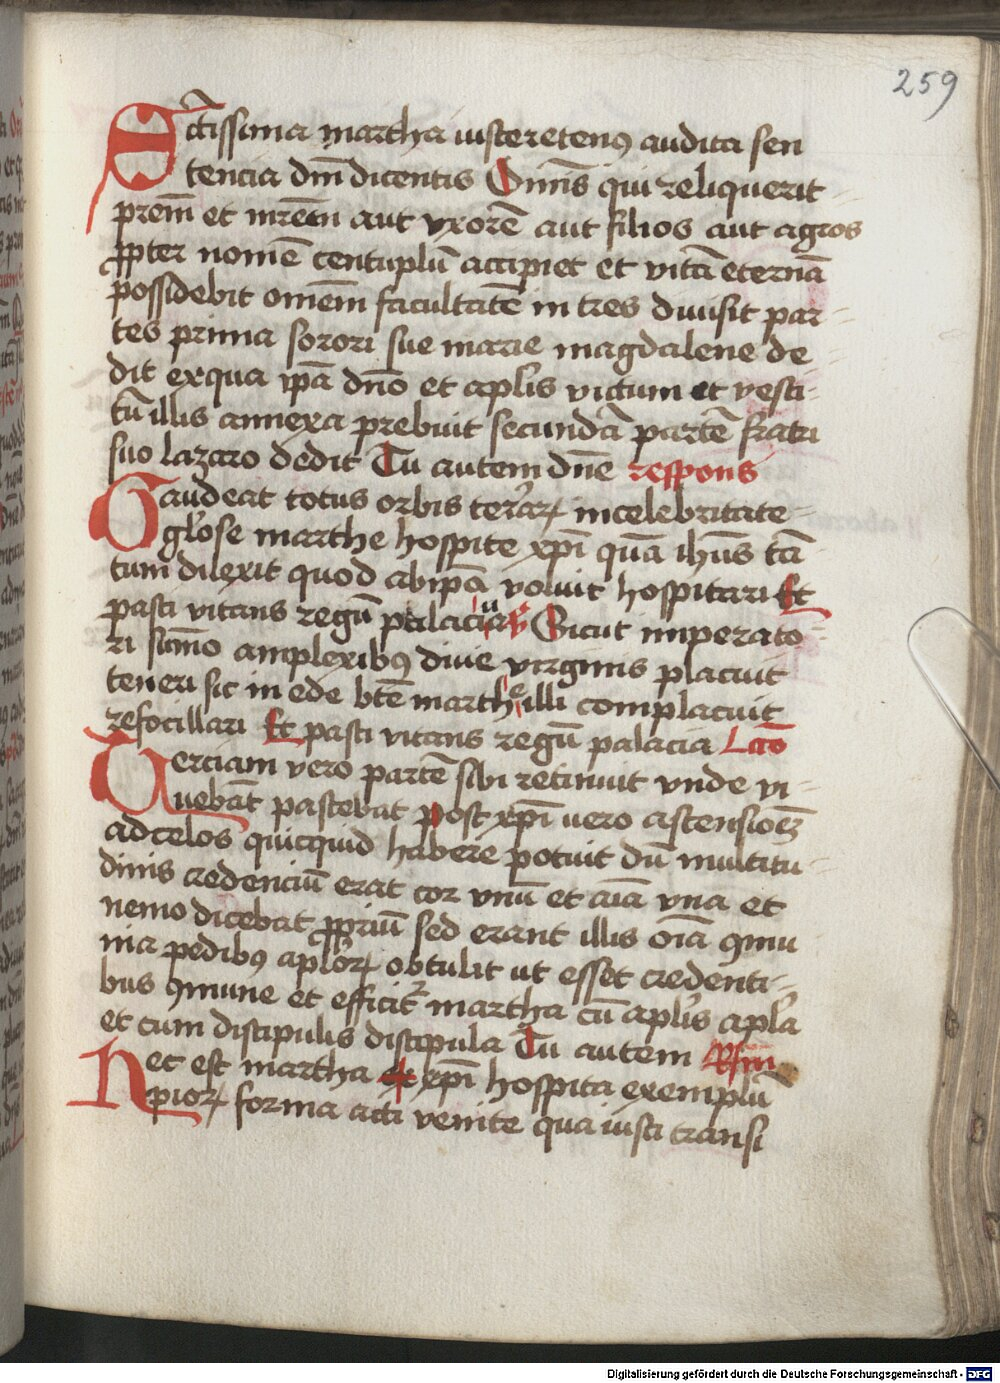 259
Sctissima martha iusteretenꝰ audita sen
tencia dm̄ dicentis Omīs qui reliquerit
prem̄ et mrem̄ aut vxorē aut filios aut agros
ꝓpter nomē centuplū accipiet et vitā eternā
possidebit omem̄ facultatē in tres diuisit par
tes prima sorori sue marie magdalene de
dit exqua ip̄a dn̄o et aplīs victum et vesti
tū illis annexa prebuit secundā partē fratri
suo lazaro dedit Tu autem dn̄e respons
Gaudeat totus orbis terrarꝝ incelebritate
gl̄ose marthe hospite xp̄i quā ihūs tā
tum dilexit quod abip̄a voluit hospitari Et
pasti vitans regū palacia ℣ Sicut imperato
ri sūmo amplexibꝰ diue virginis placuit
teneri sic in ede btē marthe illi complacuit
refocillari Et pasti vitans regū palacia Lc̄o
Terciam vero partē sibi retinuit vnde vi
uebāt pascebat post xp̄i uero ascensioēȝ
adcelos quicquid habere potuit dū multitu
dinis credenciū erat cor vnū et aīa vna et
nemo dicebat ꝓpriū sed erant illis oīa ꝯmu
nia pedibꝰ aplōrꝝ obtulit ut esset credenti
bus ꝯmune et efficit᷑ martha cū aplīs apl̄a
et cum discipulis discipula Tu autem Rm̄
Hec est martha xp̄i hospita exemplū
piorꝝ forma acti venite qua iusti transi
Digitalisierung gefördert durch die Deutsche Forschungsgemeinschaft - DFG